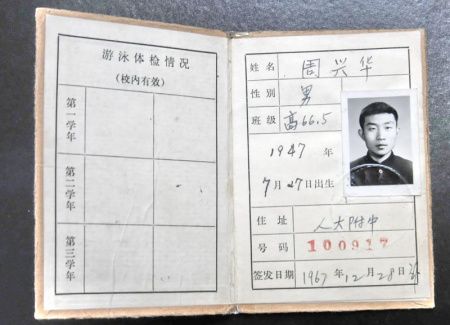 游泳体检情况
(校内有效)
第一学年
第二学年
第三学年
姓名 周兴华
性别 男
班级 高66.5
1947年
7月27日出生
住址 人大附中
号码 100917
签发日期 1967年12月28日